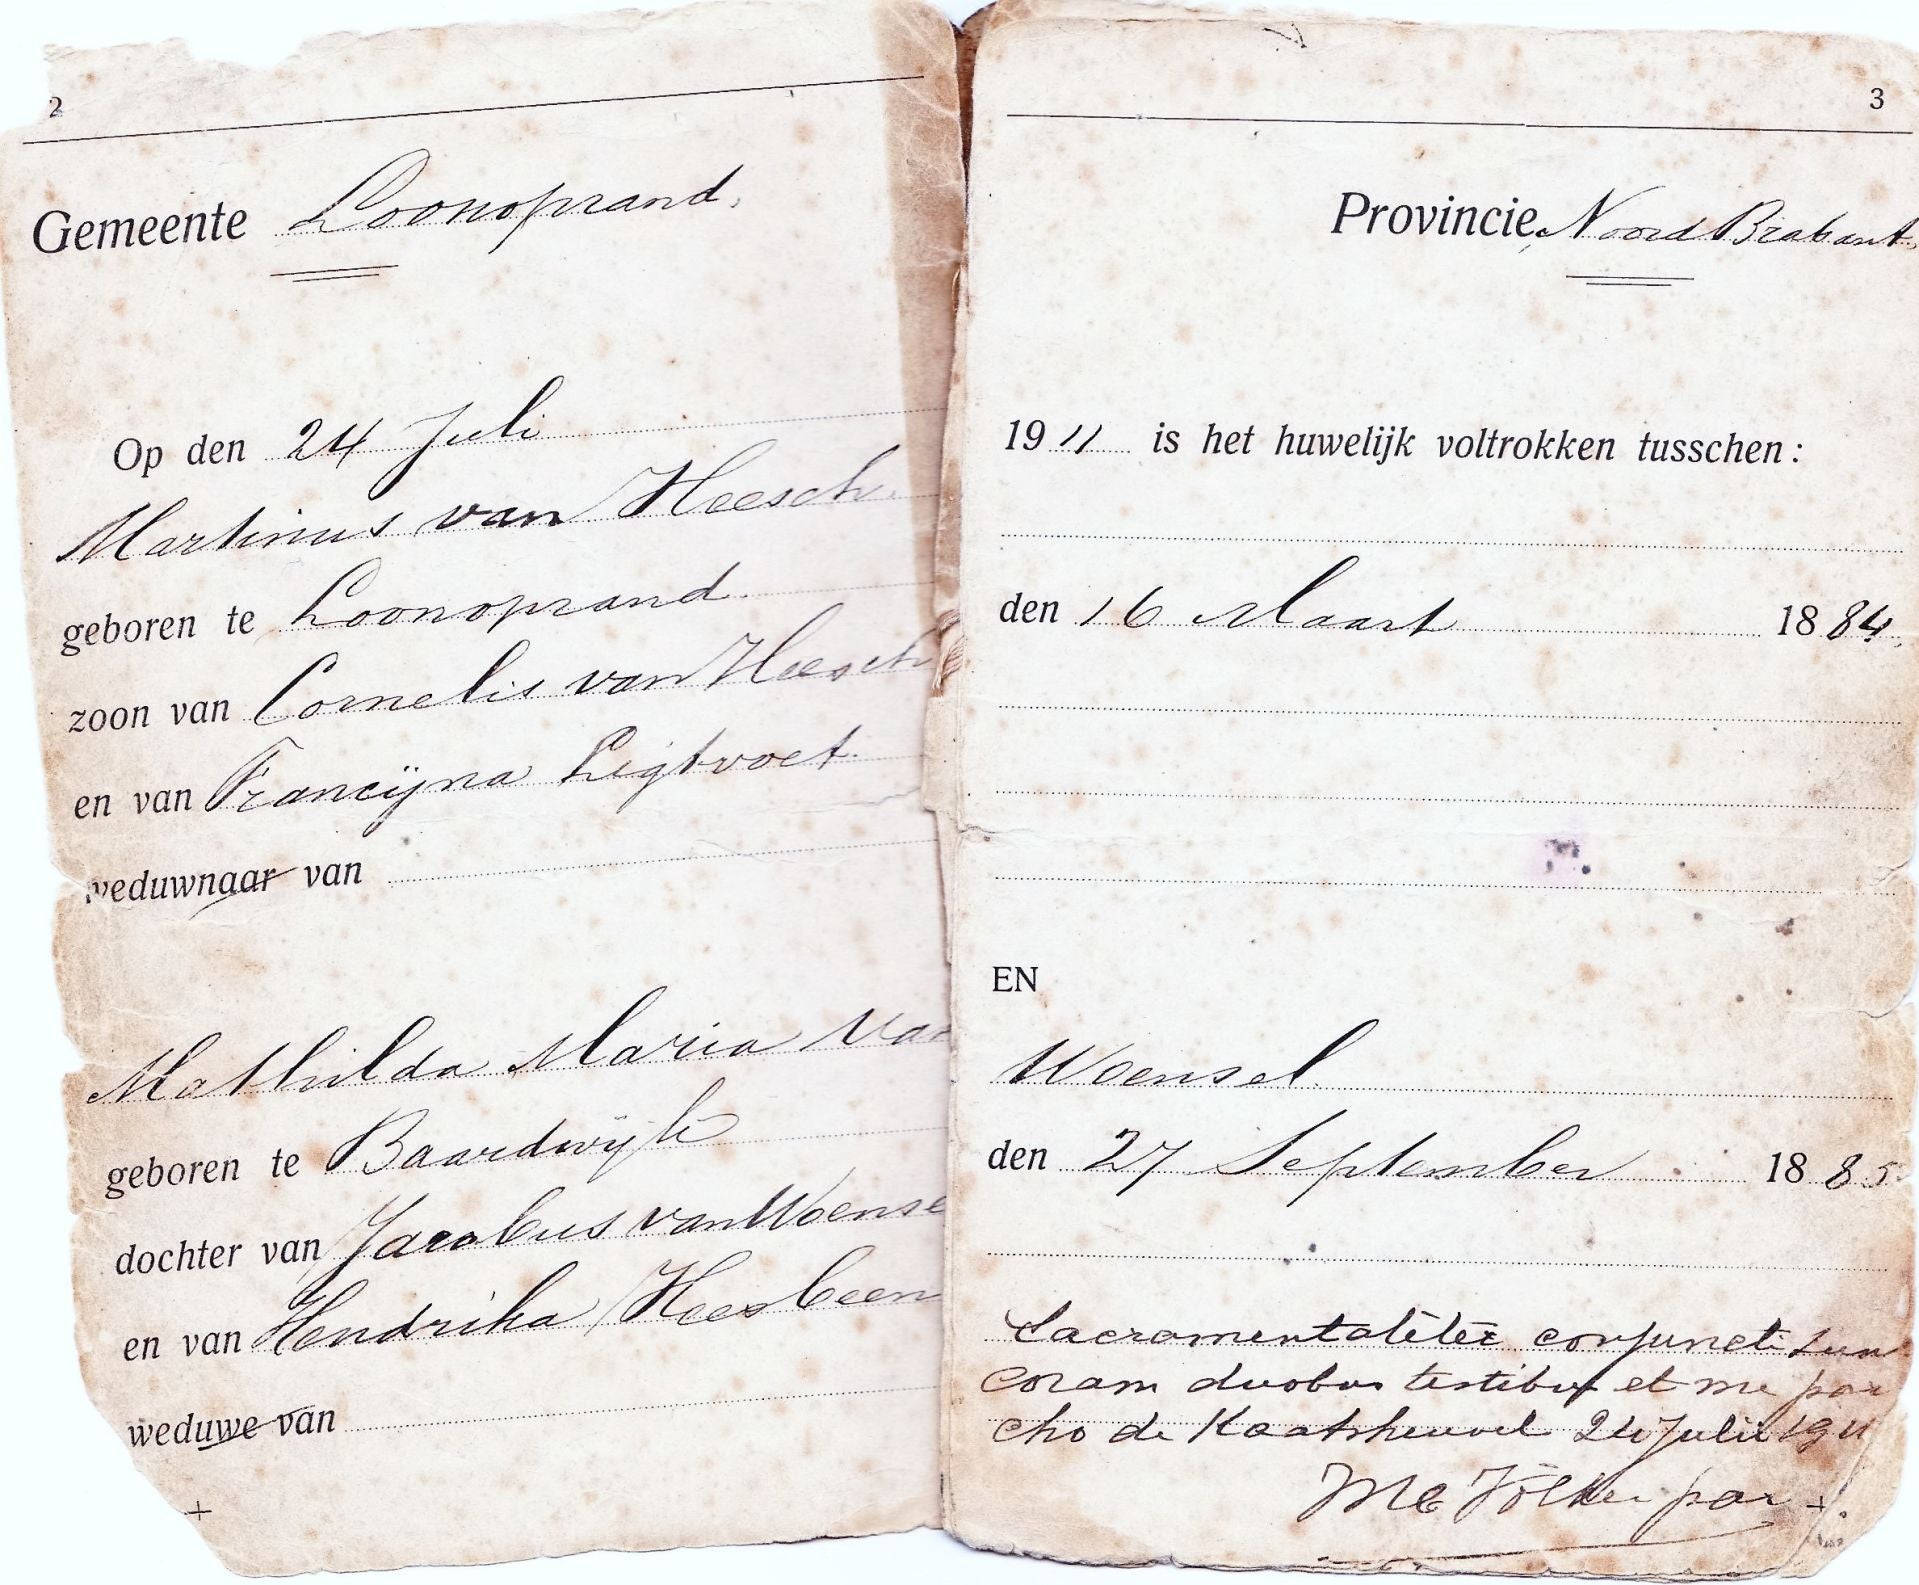 2
Gemeente Loonoprand.
Op den 24 Juli
Martinus van Heesch.
geboren te Loonoprand.
zoon van Cornelis van Heesch
en van Francijna Ligtvoet.
weduwnaar van
Mathilda Maria van
geboren te Baardwijk
dochter van Jacobus van Woense
en van Hendrika Heesbeen
weduwe van
3
Provincie Noord Brabant.
1911 is het huwelijk voltrokken tusschen:
den 16 Maart 1884.
EN
Woensel.
den 27 September 1885
Sacramentaliter conjuncti sun
coram duobus testibus et me par
cho de Kaatsheuvel 24 Julii 1911
par